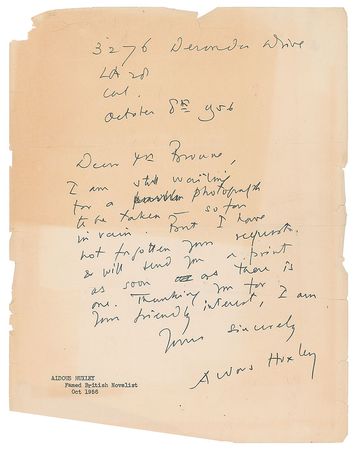 3276 Deronda Drive
LA 28
Cal.
October 8th 1956
Dear Mr Browne,
I am still waiting
for a photograph
to be taken — so far
in vain. But I have
not forgotten your request
& will send you a print
as soon as there is
one. Thanking you for
your friendly interest, I am
Yours sincerely
Aldous Huxley
ALDOUS HUXLEY
Famed British Novelist
Oct 1956